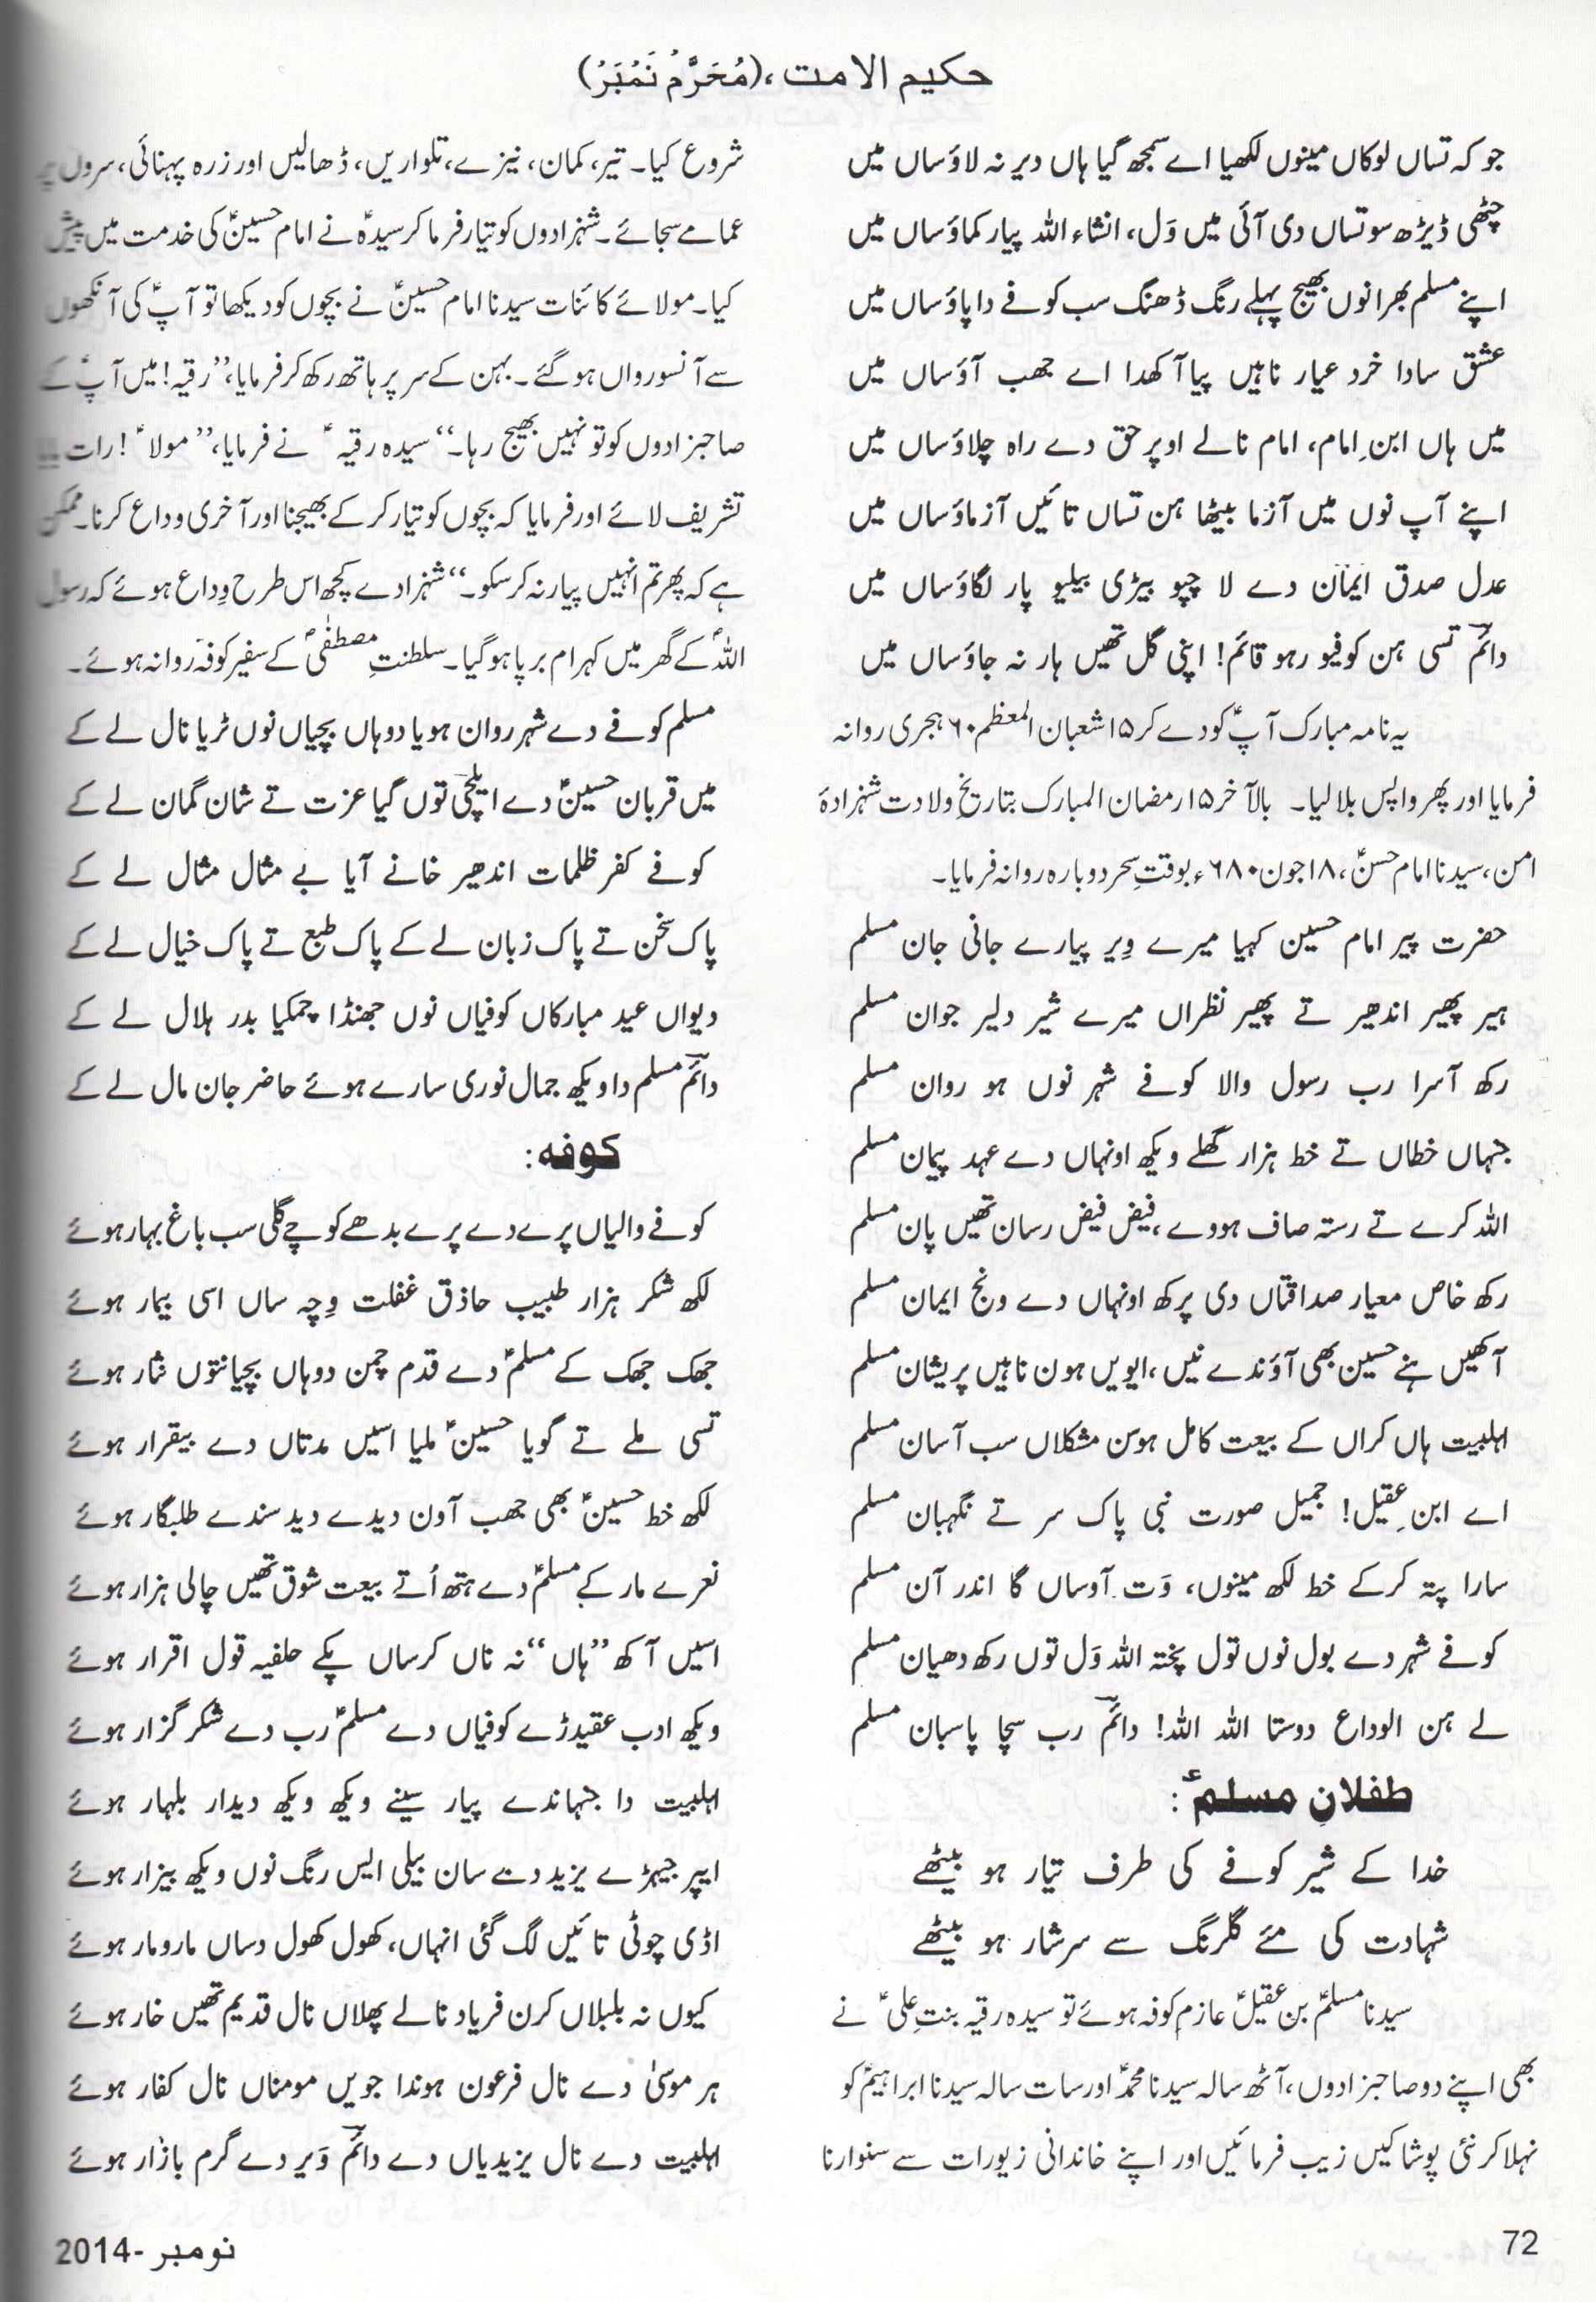 حکیم الامت ،(مُحَرَّمْ نَمْبَرُ)
جو کہ تساں لوکاں مینوں لکھیا اے سمجھ گیا ہاں دیر نہ لاؤساں میں
چٹھی ڈیڑھ سو تساں دی آئی میں وَل، انشاء اللہ پیار کماؤساں میں
اپنے مسلم بھرا نوں بھیج پہلے رنگ ڈھنگ سب کوفے دا پاؤساں میں
عشق سادا خرد عیار ناہیں پیا آکھدا اے جھب آؤساں میں
میں ہاں ابنِ امام، امام نالے اوپر حق دے راہ چلاؤساں میں
اپنے آپ نوں میں آزما بیٹھا ہن تساں تائیں آزماؤساں میں
عدل صدق ایمان دے لا چپو بیڑی بیلیو پار لگاؤساں میں
دائمؔ تسی ہن کوفیو رہو قائم! اپنی گل تھیں ہار نہ جاؤساں میں
یہ نامہ مبارک آپؑ کو دے کر ۱۵ شعبان المعظم ۶۰ ہجری روانہ
فرمایا اور پھر واپس بلا لیا۔ بالآخر ۱۵ رمضان المبارک بتاریخِ ولادت شہزادہَ
امن، سیدنا امام حسنؑ، ۱۸ جون ۶۸۰ء بوقتِ سحر دوبارہ روانہ فرمایا۔
حضرت پیر امام حسین کہیا میرے وِیر پیارے جانی جان مسلم
ہیر پھیر اندھیر تے پھیر نظراں میرے شیر دلیر جوان مسلم
رکھ آسرا رب رسول والا کوفے شہر نوں ہو روان مسلم
جنہاں خطاں تے خط ہزار گھلے ویکھ اونہاں دے عہد پیمان مسلم
اللہ کرے تے رستہ صاف ہووے، فیض فیض رسان تھیں پان مسلم
رکھ خاص معیار صداقتاں دی پرکھ اونہاں دے ونج ایمان مسلم
آکھیں ہنے حسین بھی آؤندے نیں، ایویں ہون ناہیں پریشان مسلم
اہلبیت ہاں کراں کے بیعت کامل ہوسن مشکلاں سب آسان مسلم
اے ابنِ عقیل! جمیل صورت نبی پاک سر تے نگہبان مسلم
سارا پتہ کرکے خط لکھ مینوں، وَت آوساں گا اندر آن مسلم
کوفے شہر دے بول نوں تول پختہ اللہ وَل توں رکھ دھیان مسلم
لے ہن الوداع دوستا اللہ اللہ! دائمؔ رب سچا پاسبان مسلم
طفلانِ مسلمؑ :
خدا کے شیر کوفے کی طرف تیار ہو بیٹھے
شہادت کی مئے گلرنگ سے سرشار ہو بیٹھے
سیدنا مسلمؑ بن عقیلؑ عازمِ کوفہ ہوئے تو سیدہ رقیہ بنتِ علیؑ نے
بھی اپنے دو صاحبزادوں، آٹھ سالہ سیدنا محمدؑ اور سات سالہ سیدنا ابراہیمؑ کو
نہلا کر نئی پوشاکیں زیب فرمائیں اور اپنے خاندانی زیورات سے سنوارنا
شروع کیا۔ تیر، کمان، نیزے، تلواریں، ڈھالیں اور زرہ پہنائی، سروں پر
عمامے سجائے۔ شہزادوں کو تیار فرما کر سیدہؑ نے امام حسینؑ کی خدمت میں پیش
کیا۔ مولائے کائنات سیدنا امام حسینؑ نے بچوں کو دیکھا تو آپؑ کی آنکھوں
سے آنسو رواں ہو گئے۔ بہن کے سر پر ہاتھ رکھ کر فرمایا، ”رقیہ! میں آپؑ کے
صاحبزادوں کو تو نہیں بھیج رہا۔“ سیدہ رقیہؑ نے فرمایا، ”مولاؑ! رات
تشریف لائے اور فرمایا کہ بچوں کو تیار کر کے بھیجنا اور آخری وداع کرنا۔ ممکن
ہے کہ پھر تم انہیں پیار نہ کر سکو۔“ شہزادے کچھ اس طرح وِداع ہوئے کہ رسول
اللہؐ کے گھر میں کہرام برپا ہو گیا۔ سلطنتِ مصطفٰیؐ کے سفیر کوفہ روانہ ہوئے۔
مسلم کوفے دے شہر روان ہویا دوہاں بچیاں نوں ٹریا نال لے کے
میں قربان حسینؑ دے ایلچی توں گیا عزت تے شان گمان لے کے
کوفے کفر ظلمات اندھیر خانے آیا بے مثال مثال لے کے
پاک سخن تے پاک زبان لے کے پاک طبع تے پاک خیال لے کے
دیواں عید مبارکاں کوفیاں نوں جھنڈا چمکیا بدر ہلال لے کے
دائمؔ مسلم دا ویکھ جمال نوری سارے ہوئے حاضر جان مال لے کے
کوفہ:
کوفے والیاں پرے دے پرے بدھے کوچے گلی سب باغ بہار ہوئے
لکھ شکر ہزار طبیب حاذق غفلت وِچہ ساں اسی بیمار ہوئے
جھک جھک کے مسلمؑ دے قدم چمن دوہاں بچیانتوں نثار ہوئے
تسی ملے تے گویا حسینؑ ملیا اسیں مدتاں دے بیقرار ہوئے
لکھ خط حسینؑ بھی جھب آون دیدے دید سندے طلبگار ہوئے
نعرے مار کے مسلمؑ دے ہتھ اُتے بیعت شوق تھیں چالی ہزار ہوئے
اسیں آکھ ”ہاں“ نہ ناں کرساں پکے حلفیہ قول اقرار ہوئے
ویکھ ادب عقیدڑے کوفیاں دے مسلمؑ رب دے شکر گزار ہوئے
اہلبیت دا جنہاندے پیار سینے ویکھ ویکھ دیدار بلہار ہوئے
ایپر جیہڑے یزید دے سان بیلی ایس رنگ نوں ویکھ بیزار ہوئے
اڈی چوٹی تائیں لگ گئی انہاں، کھول کھول دساں مارومار ہوئے
کیوں نہ بلبلاں کرن فریاد نالے پھلاں نال قدیم تھیں خار ہوئے
ہر موسیٰ دے نال فرعون ہوندا جویں مومناں نال کفار ہوئے
اہلبیت دے نال یزیدیاں دے دائمؔ وَیر دے گرم بازار ہوئے
72
نومبر -2014